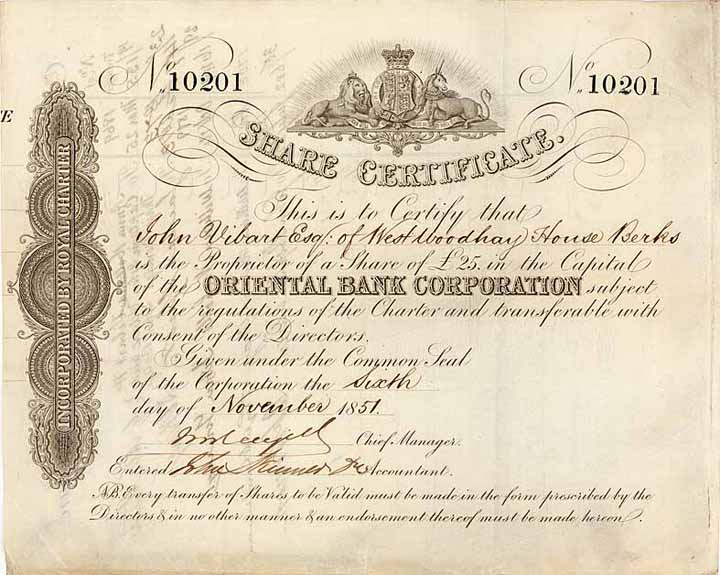 No. 10201
No. 10201
TE
SHARE CERTIFICATE.
INCORPORATED BY ROYAL CHARTER
This is to Certify that
John Vibart Esq: of West Woodhay House Berks
is the Proprietor of a Share of £25. in the Capital
of the ORIENTAL BANK CORPORATION subject
to the regulations of the Charter and transferable with
Consent of the Directors.
Given under the Common Seal
of the Corporation the Sixth
day of November 1851.
Chief Manager.
Entered John Skinner Accountant.
N.B. Every transfer of Shares to be Valid must be made in the form prescribed by the
Directors & in no other manner & an endorsement thereof must be made hereon.